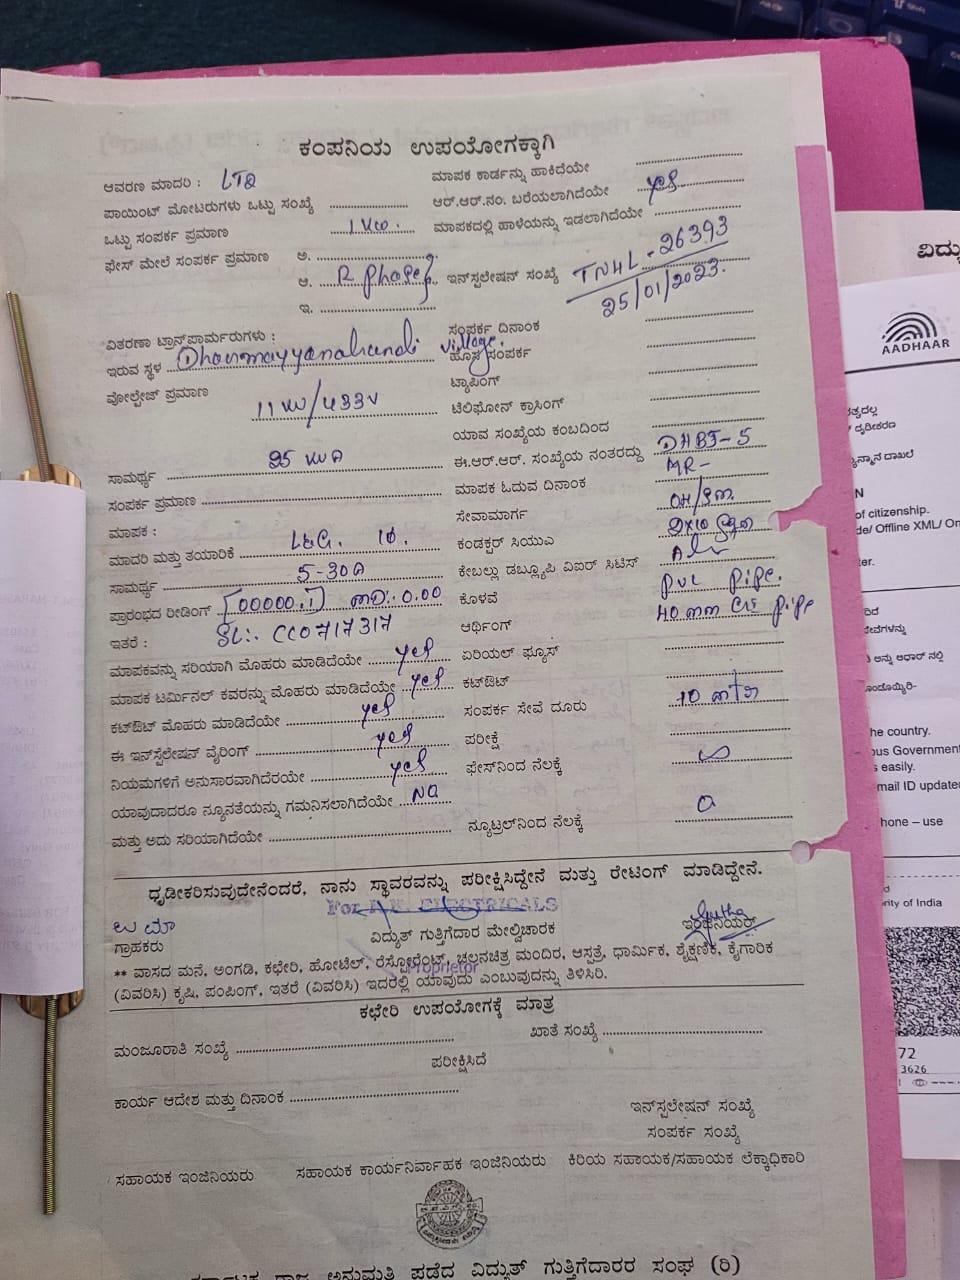 ಕಂಪನಿಯ ಉಪಯೋಗಕ್ಕಾಗಿ
ಆವರಣ ಮಾದರಿ : LT2 ಮಾಪಕ ಕಾರ್ಡನ್ನು ಹಾಕಿದೆಯೇ
ಪಾಯಿಂಟ್ ಮೋಟರುಗಳು ಒಟ್ಟು ಸಂಖ್ಯೆ ಆರ್.ಆರ್.ನಂ. ಬರೆಯಲಾಗಿದೆಯೇ yes
ಒಟ್ಟು ಸಂಪರ್ಕ ಪ್ರಮಾಣ 1 KW. ಮಾಪಕದಲ್ಲಿ ಹಾಳೆಯನ್ನು ಇಡಲಾಗಿದೆಯೇ
ಫೇಸ್ ಮೇಲೆ ಸಂಪರ್ಕ ಪ್ರಮಾಣ ಅ.
ಆ. R phase ಇನ್‌ಸ್ಟಲೇಷನ್ ಸಂಖ್ಯೆ TNHL-26393
ಇ. 25/01/2023.
ವಿತರಣಾ ಟ್ರಾನ್ಸ್‌ಫಾರ್ಮರುಗಳು : ಸಂಪರ್ಕ ದಿನಾಂಕ
ಇರುವ ಸ್ಥಳ Dhanmayyanahundi village. ಹೊಸ ಸಂಪರ್ಕ
ವೋಲ್ಟೇಜ್ ಪ್ರಮಾಣ 11 KV/433V ಟ್ಯಾಪಿಂಗ್
ಟೆಲಿಫೋನ್ ಕ್ರಾಸಿಂಗ್
ಯಾವ ಸಂಖ್ಯೆಯ ಕಂಬದಿಂದ
ಸಾಮರ್ಥ್ಯ 25 KVA ಈ.ಆರ್.ಆರ್. ಸಂಖ್ಯೆಯ ನಂತರದ್ದು DHBJ-5
ಸಂಪರ್ಕ ಪ್ರಮಾಣ ಮಾಪಕ ಓದುವ ದಿನಾಂಕ MR-
ಮಾಪಕ : ಸೇವಾಮಾರ್ಗ OH/
ಮಾದರಿ ಮತ್ತು ತಯಾರಿಕೆ L&G. 1Ø. ಕಂಡಕ್ಟರ್ ಸಿಯುಎ 2x10
ಸಾಮರ್ಥ್ಯ 5-30A ಕೇಬಲ್ಲು ಡಬ್ಲ್ಯೂಪಿ ವಿಐರ್ ಸಿಟಿಸ್
ಪ್ರಾರಂಭದ ರೀಡಿಂಗ್ [00000.1] 0.00 ಕೊಳವೆ pvc pipe.
ಇತರೆ : SL:. CC0717317 ಆರ್ಥಿಂಗ್ 40 mm pipe
ಮಾಪಕವನ್ನು ಸರಿಯಾಗಿ ಮೊಹರು ಮಾಡಿದೆಯೇ yes ಏರಿಯಲ್ ಫ್ಯೂಸ್
ಮಾಪಕ ಟರ್ಮಿನಲ್ ಕವರನ್ನು ಮೊಹರು ಮಾಡಿದೆಯೇ yes ಕಟ್‌ಔಟ್
ಕಟ್‌ಔಟ್ ಮೊಹರು ಮಾಡಿದೆಯೇ yes ಸಂಪರ್ಕ ಸೇವೆ ದೂರು 10
ಈ ಇನ್‌ಸ್ಟೆಲೇಷನ್ ವೈರಿಂಗ್ yes ಪರೀಕ್ಷೆ
ನಿಯಮಗಳಿಗೆ ಅನುಸಾರವಾಗಿದೆರಯೇ yes ಫೇಸ್‌ನಿಂದ ನೆಲಕ್ಕೆ ∞
ಯಾವುದಾದರೂ ನ್ಯೂನತೆಯನ್ನು ಗಮನಿಸಲಾಗಿದೆಯೇ NO
ಮತ್ತು ಅದು ಸರಿಯಾಗಿದೆಯೇ ನ್ಯೂಟ್ರಲ್‌ನಿಂದ ನೆಲಕ್ಕೆ 0
ಧೃಡೀಕರಿಸುವುದೇನೆಂದರೆ, ನಾನು ಸ್ಥಾವರವನ್ನು ಪರೀಕ್ಷಿಸಿದ್ದೇನೆ ಮತ್ತು ರೇಟಿಂಗ್ ಮಾಡಿದ್ದೇನೆ.
For ELECTRICALS
ಉಮಾ
ಗ್ರಾಹಕರು ವಿದ್ಯುತ್ ಗುತ್ತಿಗೆದಾರ ಮೇಲ್ವಿಚಾರಕ ಇಂಜಿನಿಯರ್
** ವಾಸದ ಮನೆ, ಅಂಗಡಿ, ಕಛೇರಿ, ಹೋಟೆಲ್, ರೆಸ್ಟೋರೆಂಟ್, ಚಲನಚಿತ್ರ ಮಂದಿರ, ಆಸ್ಪತ್ರೆ, ಧಾರ್ಮಿಕ, ಶೈಕ್ಷಣಿಕ, ಕೈಗಾರಿಕ
Proprietor
(ವಿವರಿಸಿ) ಕೃಷಿ, ಪಂಪಿಂಗ್, ಇತರೆ (ವಿವರಿಸಿ) ಇದರಲ್ಲಿ ಯಾವುದು ಎಂಬುವುದನ್ನು ತಿಳಿಸಿರಿ.
ಕಛೇರಿ ಉಪಯೋಗಕ್ಕೆ ಮಾತ್ರ
ಮಂಜೂರಾತಿ ಸಂಖ್ಯೆ ಖಾತೆ ಸಂಖ್ಯೆ
ಪರೀಕ್ಷಿಸಿದೆ
ಕಾರ್ಯ ಆದೇಶ ಮತ್ತು ದಿನಾಂಕ
ಇನ್‌ಸ್ಟಲೇಷನ್ ಸಂಖ್ಯೆ
ಸಂಪರ್ಕ ಸಂಖ್ಯೆ
ಸಹಾಯಕ ಇಂಜಿನಿಯರು ಸಹಾಯಕ ಕಾರ್ಯನಿರ್ವಾಹಕ ಇಂಜಿನಿಯರು ಕಿರಿಯ ಸಹಾಯಕ/ಸಹಾಯಕ ಲೆಕ್ಕಾಧಿಕಾರಿ
ಅನುಮತಿ ಪಡೆದ ವಿದ್ಯುತ್ ಗುತ್ತಿಗೆದಾರರ ಸಂಘ (ರಿ)
AADHAAR
of citizenship.
Offline XML/
he country.
Government
easily.
mail ID update
hone – use
rity of India
72
3626